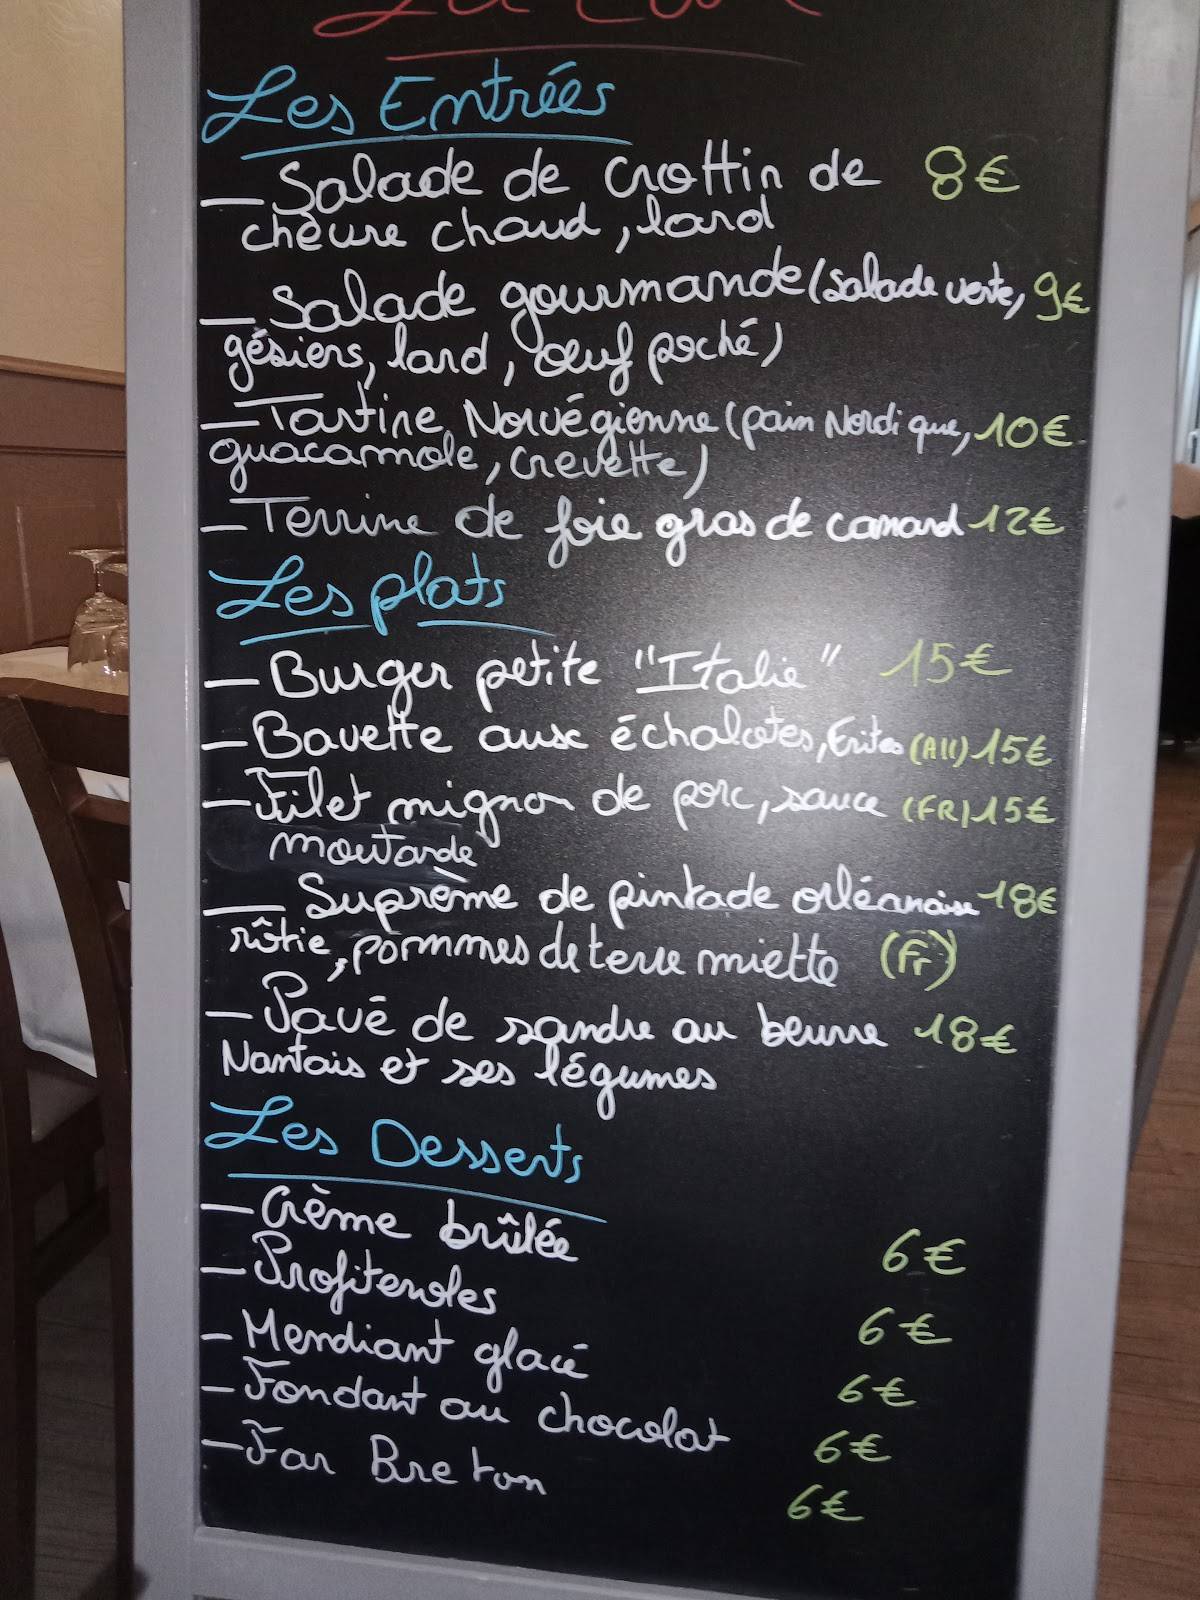 La Carte
Les Entrées
_ Salade de Crottin de 8€
chèvre chaud, lard
_ Salade gourmande (salade verte, 9€
gésiers, lard, œuf poché)
_ Tartine Norvégienne (pain Nordique, 10€
guacamole, crevette)
_ Terrine de foie gras de canard 12€
Les plats
_ Burger petite "Italie" 15€
_ Bavette aux échalotes, frites (All) 15€
_ Filet mignon de porc, sauce (FR) 15€
moutarde
_ Suprème de pintade orléanaise 18€
rôtie, pommes de terre miette (Fr)
_ Pavé de sandre au beurre 18€
Nantais et ses légumes
Les Desserts
_ Crème brûlée 6€
_ Profiteroles 6€
_ Mendiant glacé 6€
_ Fondant au chocolat 6€
_ Far Breton 6€